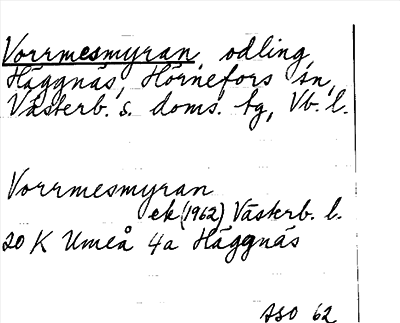 Vorrmesmyran, odling,
Häggnäs, Hörnefors sn,
Västerb. s. doms. tg, Vb. l.
Vorrmesmyran
ek (1962) Västerb. l.
20 K Umeå 4a Häggnäs
ASO 62